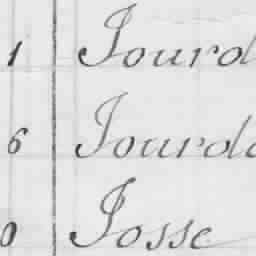 1 Jourd
6 Jourda
0 Josse